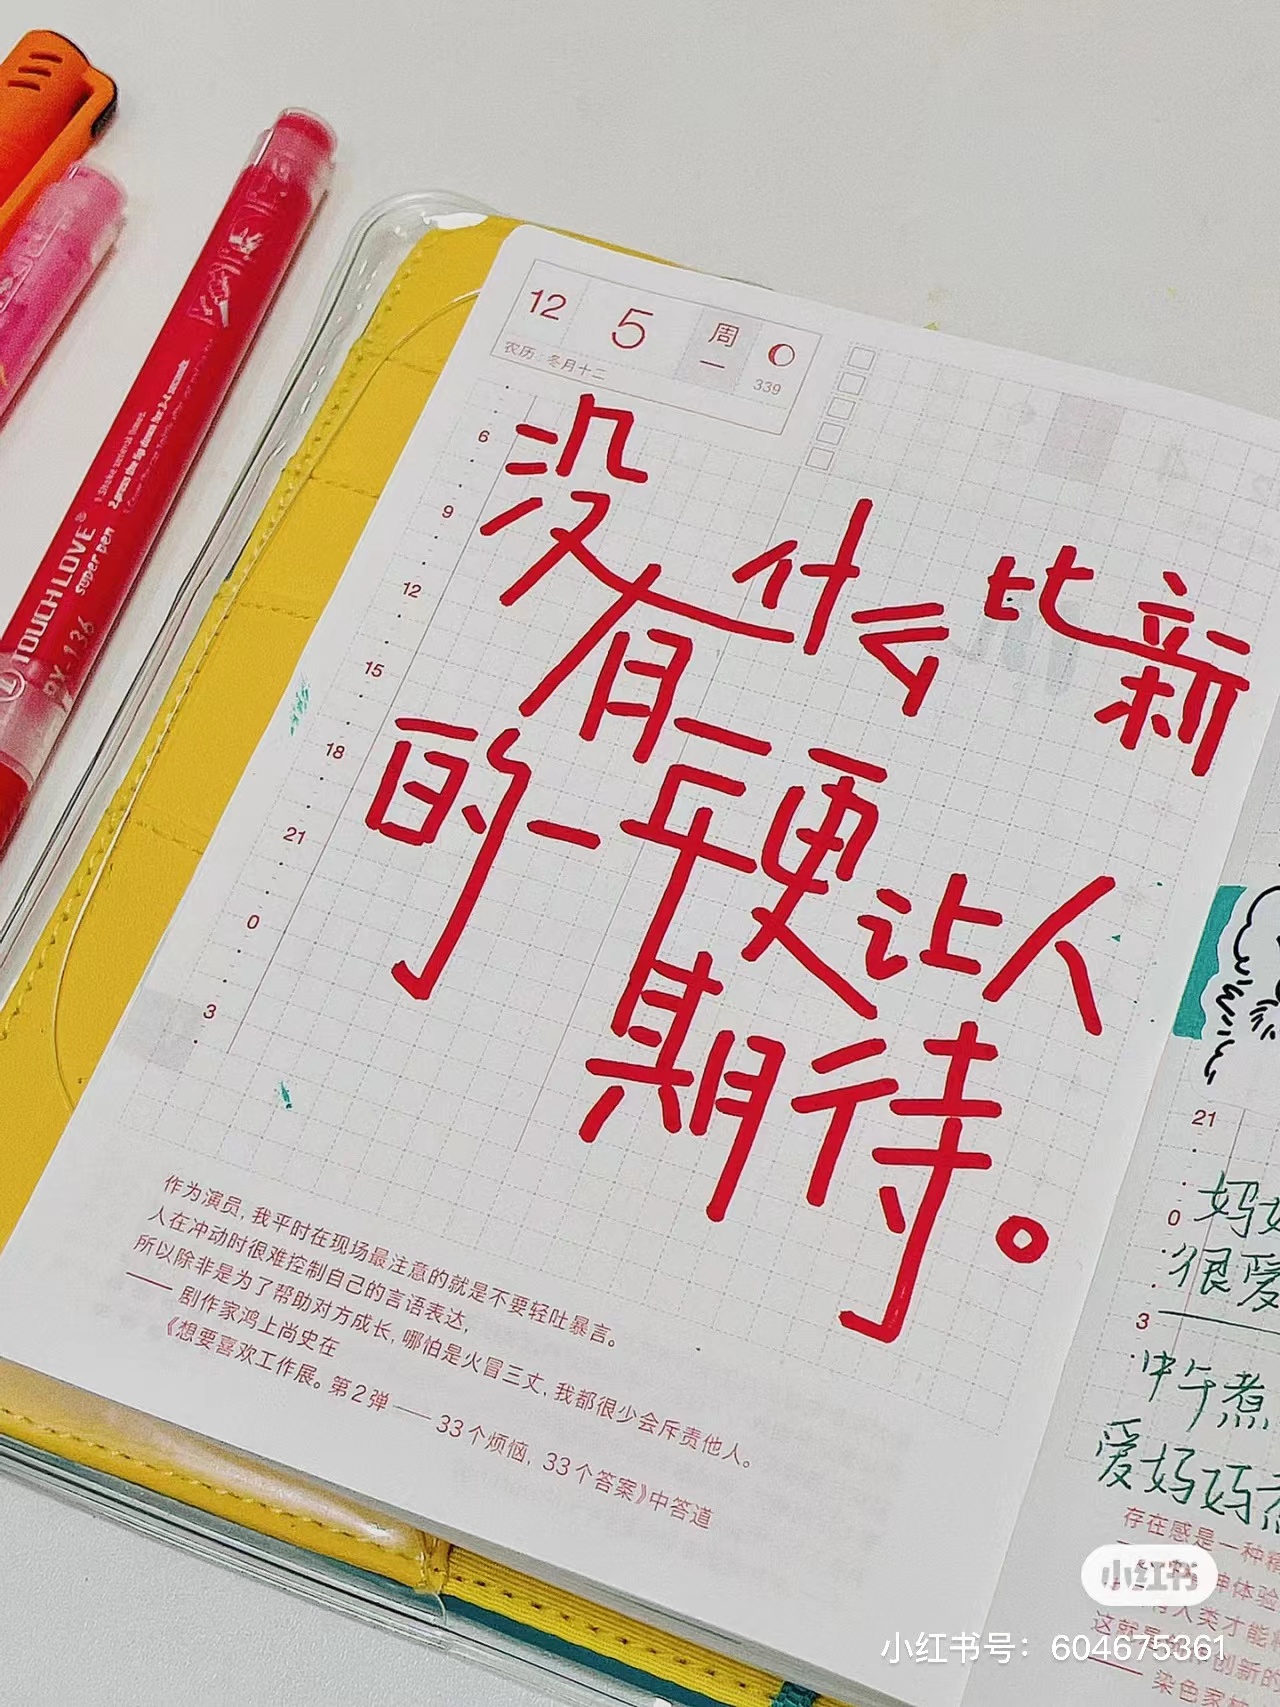 TOUCH LOVE®
super pen
2.press the tip down for 3-4 seconds
12 5 周一
农历·冬月十二
339
6
9
12
15
18
21
0
3
没有什么比新
的一年更让人
期待。
作为演员，我平时在现场最注意的就是不要轻吐暴言。
人在冲动时很难控制自己的言语表达，
所以除非是为了帮助对方成长，哪怕是火冒三丈，我都很少会斥责他人。
—— 剧作家鸿上尚史在
《想要喜欢工作展。第2弹——33个烦恼，33个答案》中答道
21
0
3
妈
很爱
中午煮
爱妈妈
存在感是一种
神体验
人类才能
创新的
染色家
小红书
小红书号：604675361